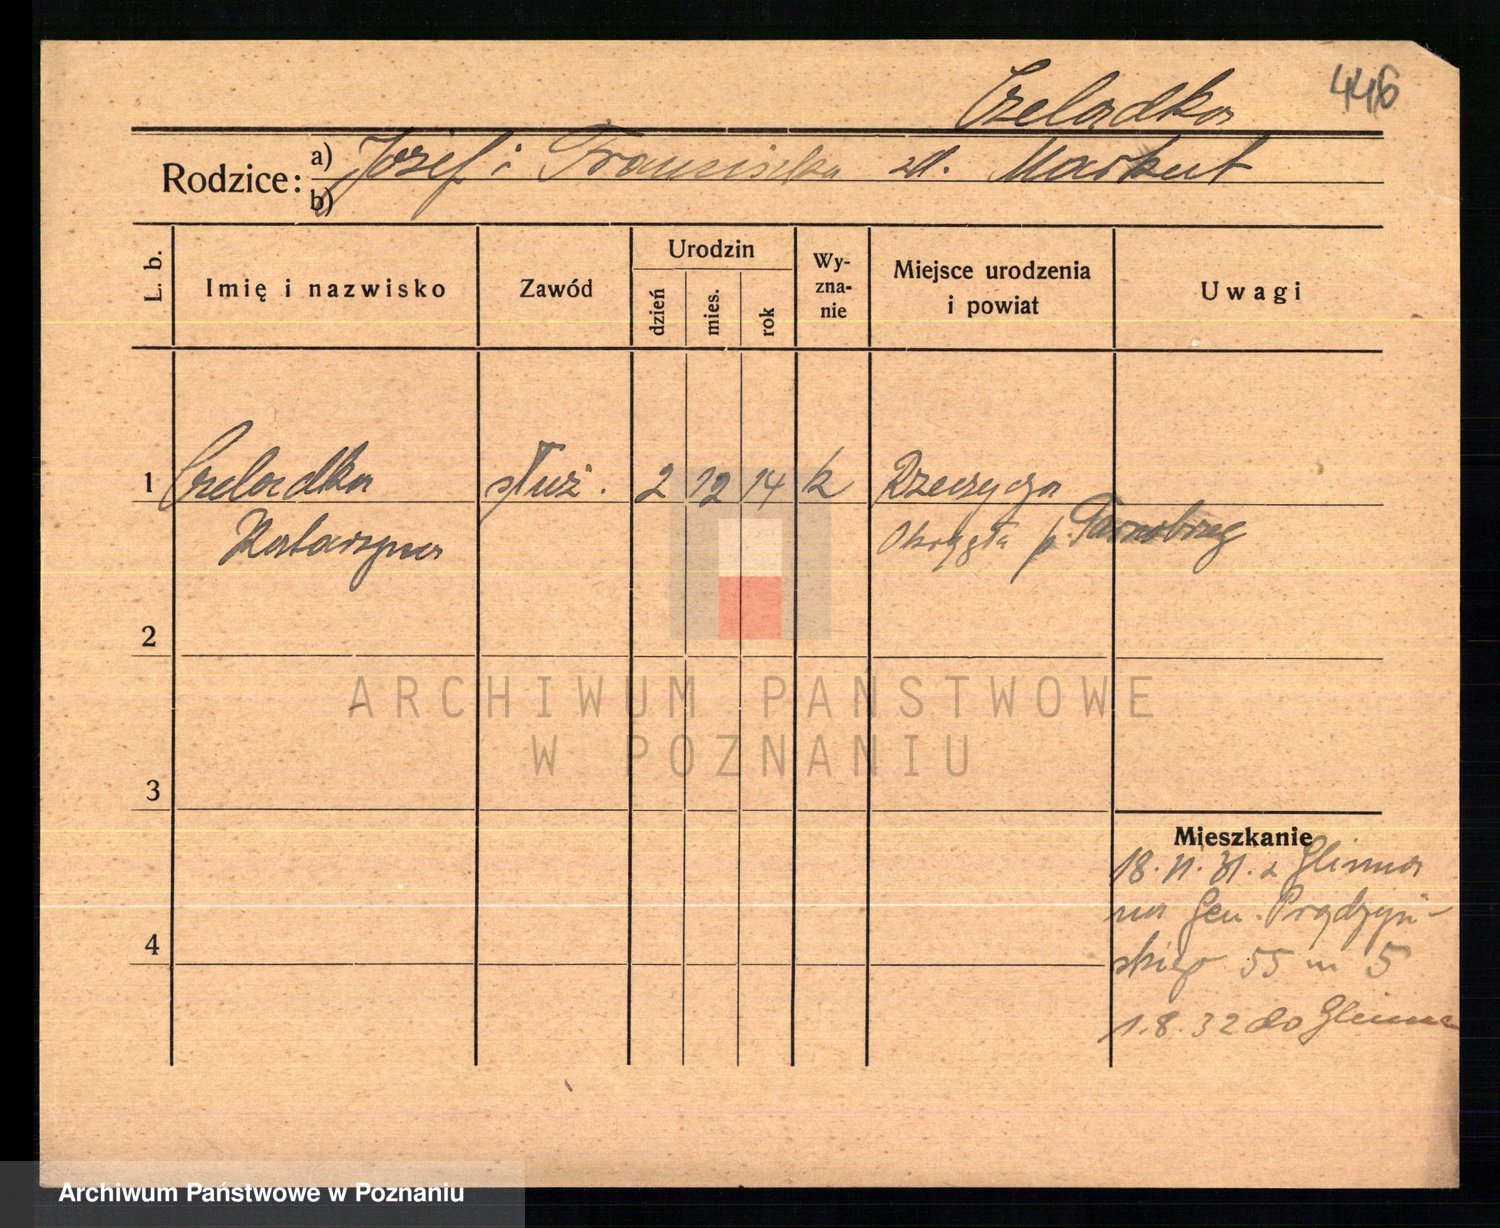 446
Czeladka
Rodzice: a) Józef i Franciszka zd. Markut
b)
L. b. Imię i nazwisko Zawód Urodzin dzień mies. rok Wy-zna-nie Miejsce urodzenia i powiat Uwagi
1 Czeladka służ. 2 12 14 k Rzeczyca
Katarzyna Okrągła p. Tarnobrzeg
2
3
Mieszkanie
18. 11. 31. z Glinna
na Gen. Prądzyń-
4
skiego 55 m 5
1. 8. 32 do Glinna
ARCHIWUM PAŃSTWOWE
W POZNANIU
Archiwum Państwowe w Poznaniu